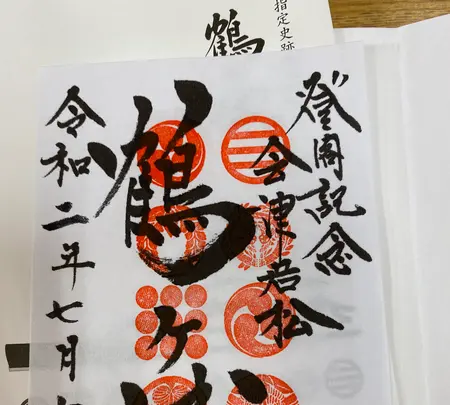 指定史跡
鶴
登閣記念
会津若松
鶴ヶ
令和二年七月